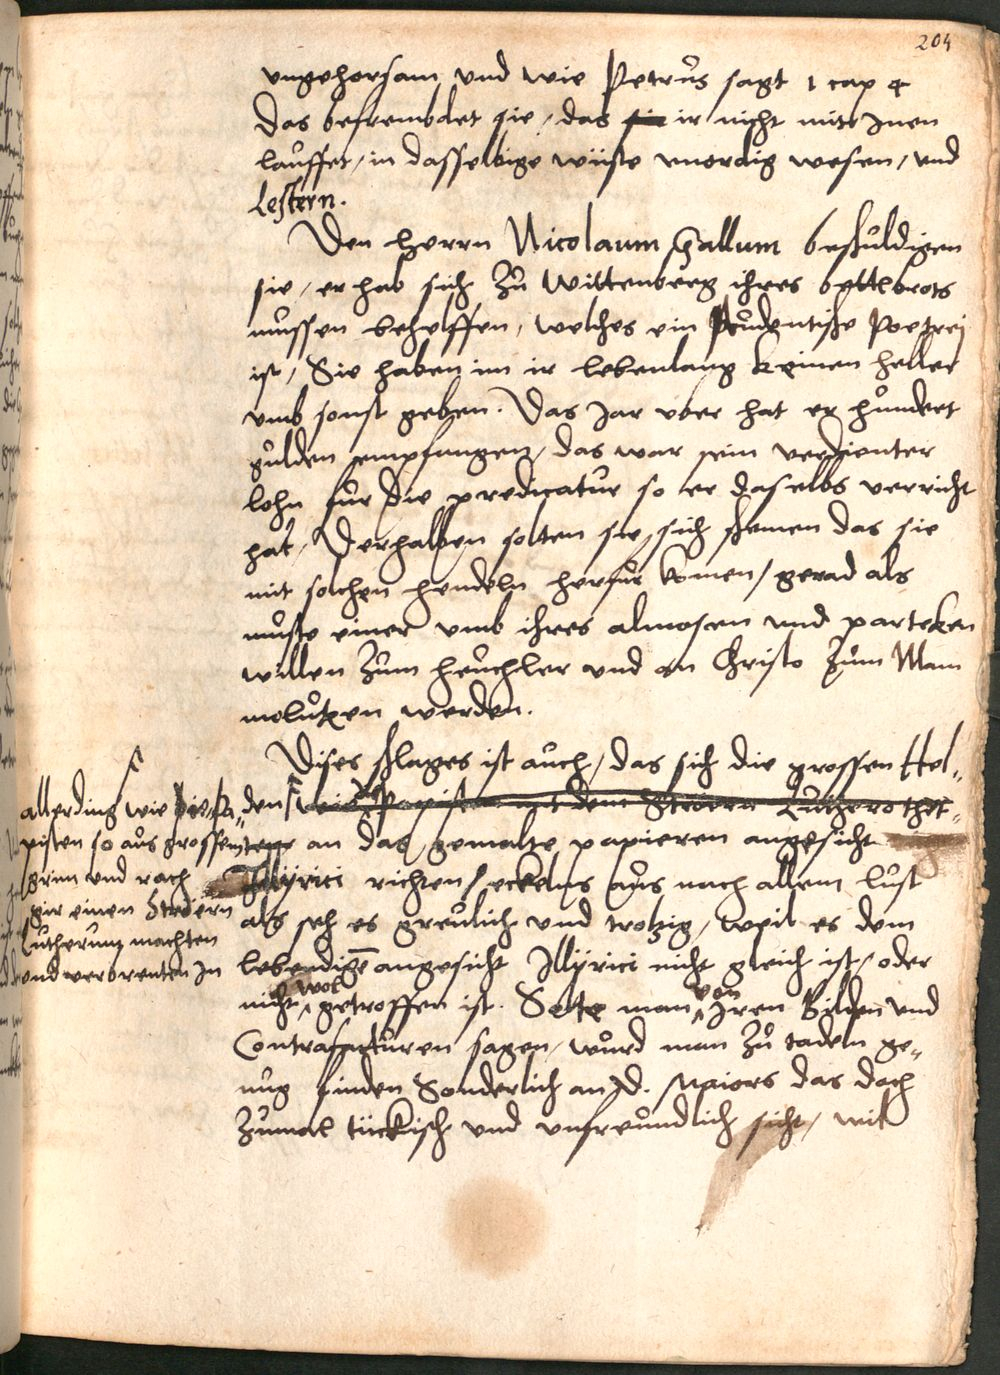 204
ungehorsam und wie Petrus sagt 1 cap 4
Das befrembdet sie / das sie ir nicht mitt Jnen
lauffet / in dasselbige wüste unordig wesen / und
Lestern.
Den Herrn Nicolaum Gallum beschuldigen
sie / er hab sich zu Wittenberg ihres bettelbrots
mussen behelffen / welches ein Prudentische Poetrej
ist / Sie haben im ir lebenlang keinen heller
umb sonst geben. Das Jar uber hat er hundert
gulden empfangen / das war sein verdienter
lohn fur die predicatur so er daselbs verricht
hat / Derhalben solten sie sich schemen das sie
mit solchen hendeln herfur komen / gerad als
muste einer umb ihres almosen und parteken
willen zum heuchler und an Christo zum Mam
molucken werden.
Dises schlages ist auch / das sich die grossen Hel-
den wie die Papisten mit dem Ströern Luthero thet-
ten an das gemalte papieren angesicht
Illÿrici richten / eckelns aus nach allem lust
als seh es greulich und trotzig / weil es dem
lebendigen angesicht Jllÿrici nicht gleich ist / oder
nicht wol getroffen ist. Solte man von Jren Bilden und
Contrafacturen sagen / wurd man zu tadeln ge-
nug finden Sonderlich an D. Maiors das doch
zumal tückisch und unfreundlich sicht / wil
allerding wie die Pa-
pisten so aus grossem
grim und rach
gir einen Ströern
Lutherum machten
und verbrenten Jn